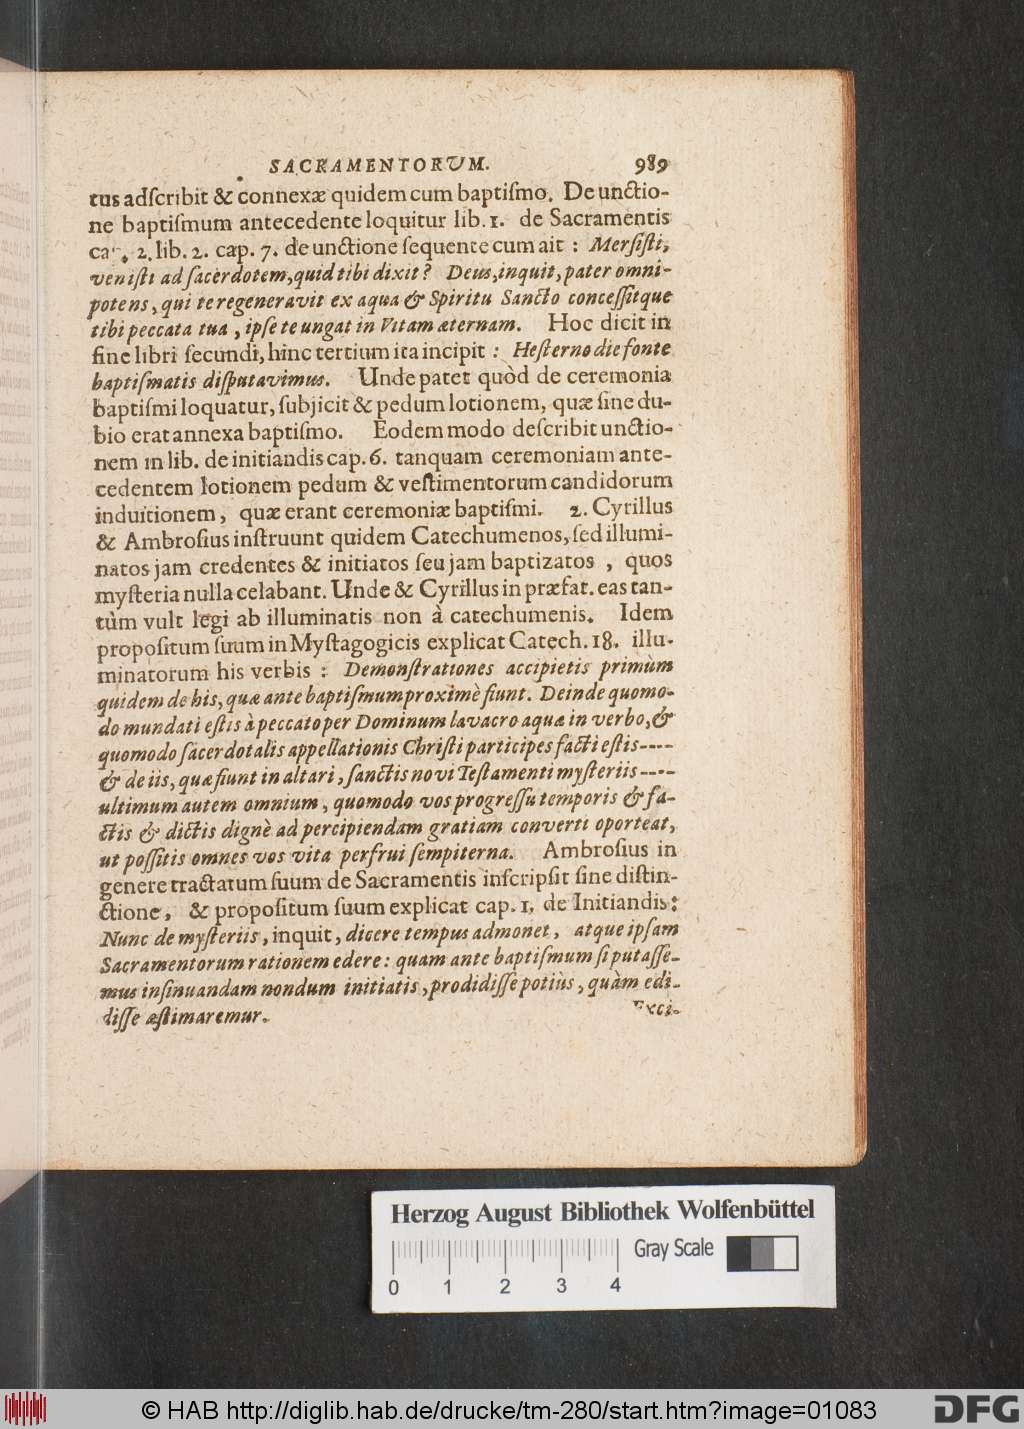 SACRAMENTORUM. 989
tus adſcribit & connexæ quidem cum baptiſmo. De unctio-
ne baptiſmum antecedente loquitur lib. 1. de Sacramentis
ca. 2. lib. 2. cap. 7. de unctione ſequente cum ait : Merſiſti,
veniſti ad ſacerdotem, quid tibi dixit? Deus, inquit, pater omni-
potens, qui te regeneravit ex aqua & Spiritu Sancto conceſſitque
tibi peccata tua, ipſe te ungat in Vitam æternam. Hoc dicit in
fine libri ſecundi, hinc tertium ita incipit : Heſterno die fonte
baptiſmatis diſputavimus. Unde patet quòd de ceremonia
baptiſmi loquatur, ſubjicit & pedum lotionem, quæ ſine du-
bio erat annexa baptiſmo. Eodem modo deſcribit unctio-
nem in lib. de initiandis cap. 6. tanquam ceremoniam ante-
cedentem lotionem pedum & veſtimentorum candidorum
induitionem, quæ erant ceremoniæ baptiſmi. 2. Cyrillus
& Ambroſius inſtruunt quidem Catechumenos, ſed illumi-
natos jam credentes & initiatos ſeu jam baptizatos, quos
myſteria nulla celabant. Unde & Cyrillus in præfat. eas tan-
tùm vult legi ab illuminatis non à catechumenis. Idem
propoſitum ſuum in Myſtagogicis explicat Catech. 18. illu-
minatorum his verbis : Demonſtrationes accipietis primùm
quidem de his, quæ ante baptiſmum proximè fiunt. Deinde quomo-
do mundati eſtis à peccato per Dominum lavacro aquæ in verbo, &
quomodo ſacerdotalis appellationis Chriſti participes facti eſtis----
& de iis, quæ fiunt in altari, ſanctis novi Teſtamenti myſteriis----
ultimum autem omnium, quomodo vos progreſſu temporis & fa-
ctis & dictis dignè ad percipiendam gratiam converti oporteat,
ut poſſitis omnes vos vita perfrui ſempiterna. Ambroſius in
genere tractatum ſuum de Sacramentis inſcripſit ſine diſtin-
ctione, & propoſitum ſuum explicat cap. 1. de Initiandis:
Nunc de myſteriis, inquit, dicere tempus admonet, atque ipſam
Sacramentorum rationem edere: quam ante baptiſmum ſi putaſſe-
mus inſinuandam nondum initiatis, prodidiſſe potiùs, quàm edi-
diſſe æſtimaremur.
Exci-
Herzog August Bibliothek Wolfenbüttel
Gray Scale
0 1 2 3 4
© HAB http://diglib.hab.de/drucke/tm-280/start.htm?image=01083
DFG